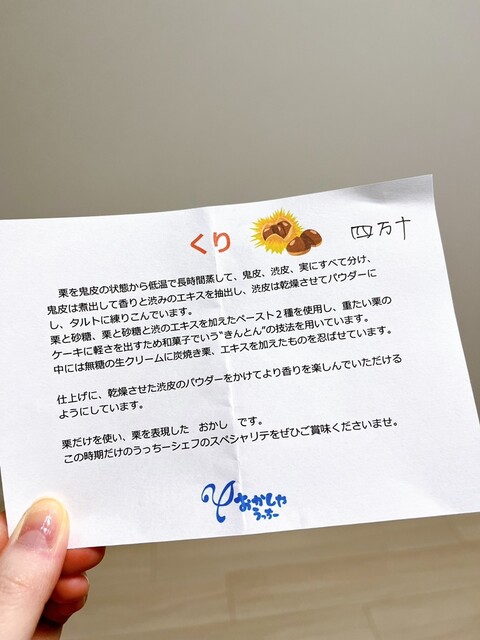 くり
四万十
栗を鬼皮の状態から低温で長時間蒸して、鬼皮、渋皮、実にすべて分け、
鬼皮は煮出して香りと渋みのエキスを抽出し、渋皮は乾燥させてパウダーに
し、タルトに練りこんでいます。
栗と砂糖、栗と砂糖と渋のエキスを加えたペースト2種を使用し、重たい栗の
ケーキに軽さを出すため和菓子でいう"きんとん"の技法を用いています。
中には無糖の生クリームに炭焼き栗、エキスを加えたものを忍ばせています。
仕上げに、乾燥させた渋皮のパウダーをかけてより香りを楽しんでいただける
ようにしています。
栗だけを使い、栗を表現した おかし です。
この時期だけのうっちーシェフのスペシャリテをぜひご賞味くださいませ。
おかしや
うっちー